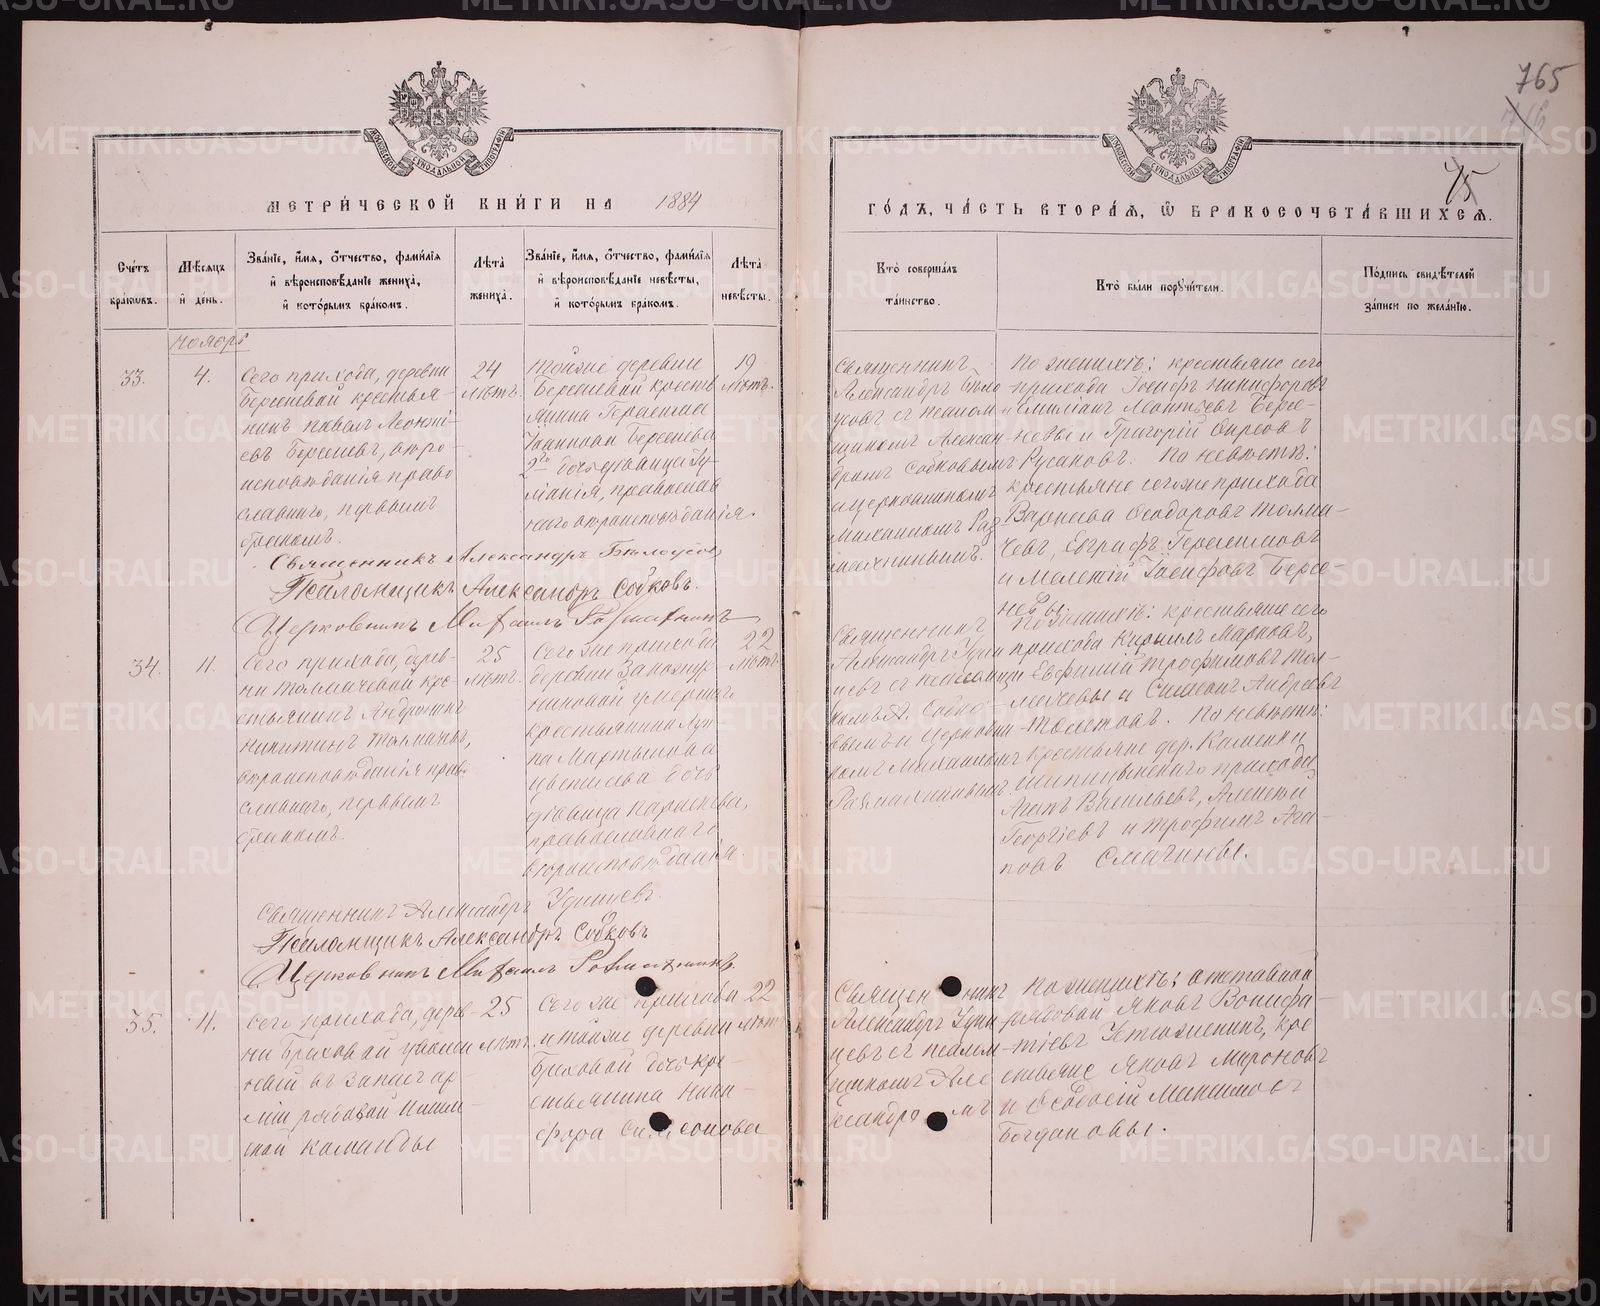 765
75
МЕТРИ́ЧЕСКОЙ КНИ́ГИ НА 1884
ГО́ДЪ, ЧА́СТЬ ВТОРА́Я, Ѿ БРАКОСОЧЕТА́ВШИХСЯ.
Сче́тъ бра́ковъ.
Мѣ́сяцъ и́ день.
Зва́нїе, и́мя, о́тчество, фами́лїя и́ вѣроисповѣ́данїе жениха́, и́ кото́рымъ бра́комъ.
Лѣта̀ жениха̀.
Зва́нїе, и́мя, о́тчество, фами́лїя и́ вѣроисповѣ́данїе невѣ́сты, и́ кото́рымъ бра́комъ.
Лѣта̀ невѣ́сты.
Кто̀ соверша́лъ та́инство.
Кто̀ бы́ли порꙋчи́тели.
По́дпись свидѣ́телей за́писи по жела́нїю.
Ноябрь
33.
4.
Сего прихода, деревни
Берсеневой крестья-
нинъ Павелъ Леонтi-
евъ Берсеневъ, вѣро-
исповѣданія право
славнаго, первымъ
бракомъ.
24
лѣтъ.
Тойже деревни
Берсеневой кресть
янина Герасима
Іоаннова Берсенева
дочь дѣвица
православ
наго вѣроисповѣданія.
19
лѣтъ.
Священникъ
Александръ Бѣло
усовъ съ псалом
щикомъ Алексан
дромъ Собковымъ
и церковникомъ
Михаиломъ Раз
махнинымъ.
По женихѣ: крестьяне сего
прихода Іосифъ Никифоровъ
и Емиліанъ Леонтьевъ Берсе-
невы и Григорій Фирсовъ
Русаковъ. По невѣстѣ:
крестьяне сегоже прихода
Варнава Ѳеодоровъ Толма-
чевъ, Евграфъ Герасимовъ
и Мелетій Іосифовъ Берсе-
невы.
Священникъ Александръ Бѣлоусовъ
Псаломщикъ Александръ Собковъ.
Церковникъ Михаилъ Размахнинъ
34.
11.
Сего прихода, дерев-
ни Толмачевой кре-
стьянинъ Андроникъ
Никитинъ Толмачевъ,
вѣроисповѣданія прав
славнаго, первымъ
бракомъ.
25
лѣтъ.
Сегоже прихода
деревни
умершаго
крестьянина Лу
ки Мартынова
дочь
дѣвица Параскева,
православнаго
вѣроисповѣданія.
22
лѣтъ.
Священникъ
Александръ Удин
цевъ съ псаломщи
комъ А. Собко-
вымъ и церковни
комъ Михаиломъ
Размахнинымъ.
По женихѣ: крестьяне сего
прихода Кириллъ Марковъ,
Евфимій Трофимовъ Тол-
мачевы и Симеонъ Андреевъ
По невѣстѣ:
крестьяне дер. Каменки
прихода
Василъевъ, Алексѣй
Георгіевъ и Трофимъ Ага-
повъ
Священникъ Александръ Удинцевъ.
Псаломщикъ Александръ Собковъ
Церковникъ Михаилъ Размахнинъ.
35.
11.
Сего прихода, дерев-
ни Бреховой уволен
ный въ запасъ ар-
міи рядовой
ской команды
25
лѣтъ.
Сегоже прихода
и тойже деревни
Бреховой дочь кре-
стьянина Ники-
фора Симеонова
22
лѣтъ
Священникъ
Александръ Удин
цевъ съ псалом-
щикомъ Але
ксандромъ
По женихѣ: отставной
рядовой Яковъ Вонифа-
тіевъ Устюжанинъ, кре
стьяне Яковъ Мироновъ
и Ѳеодосій Максимовъ
Богдановы.